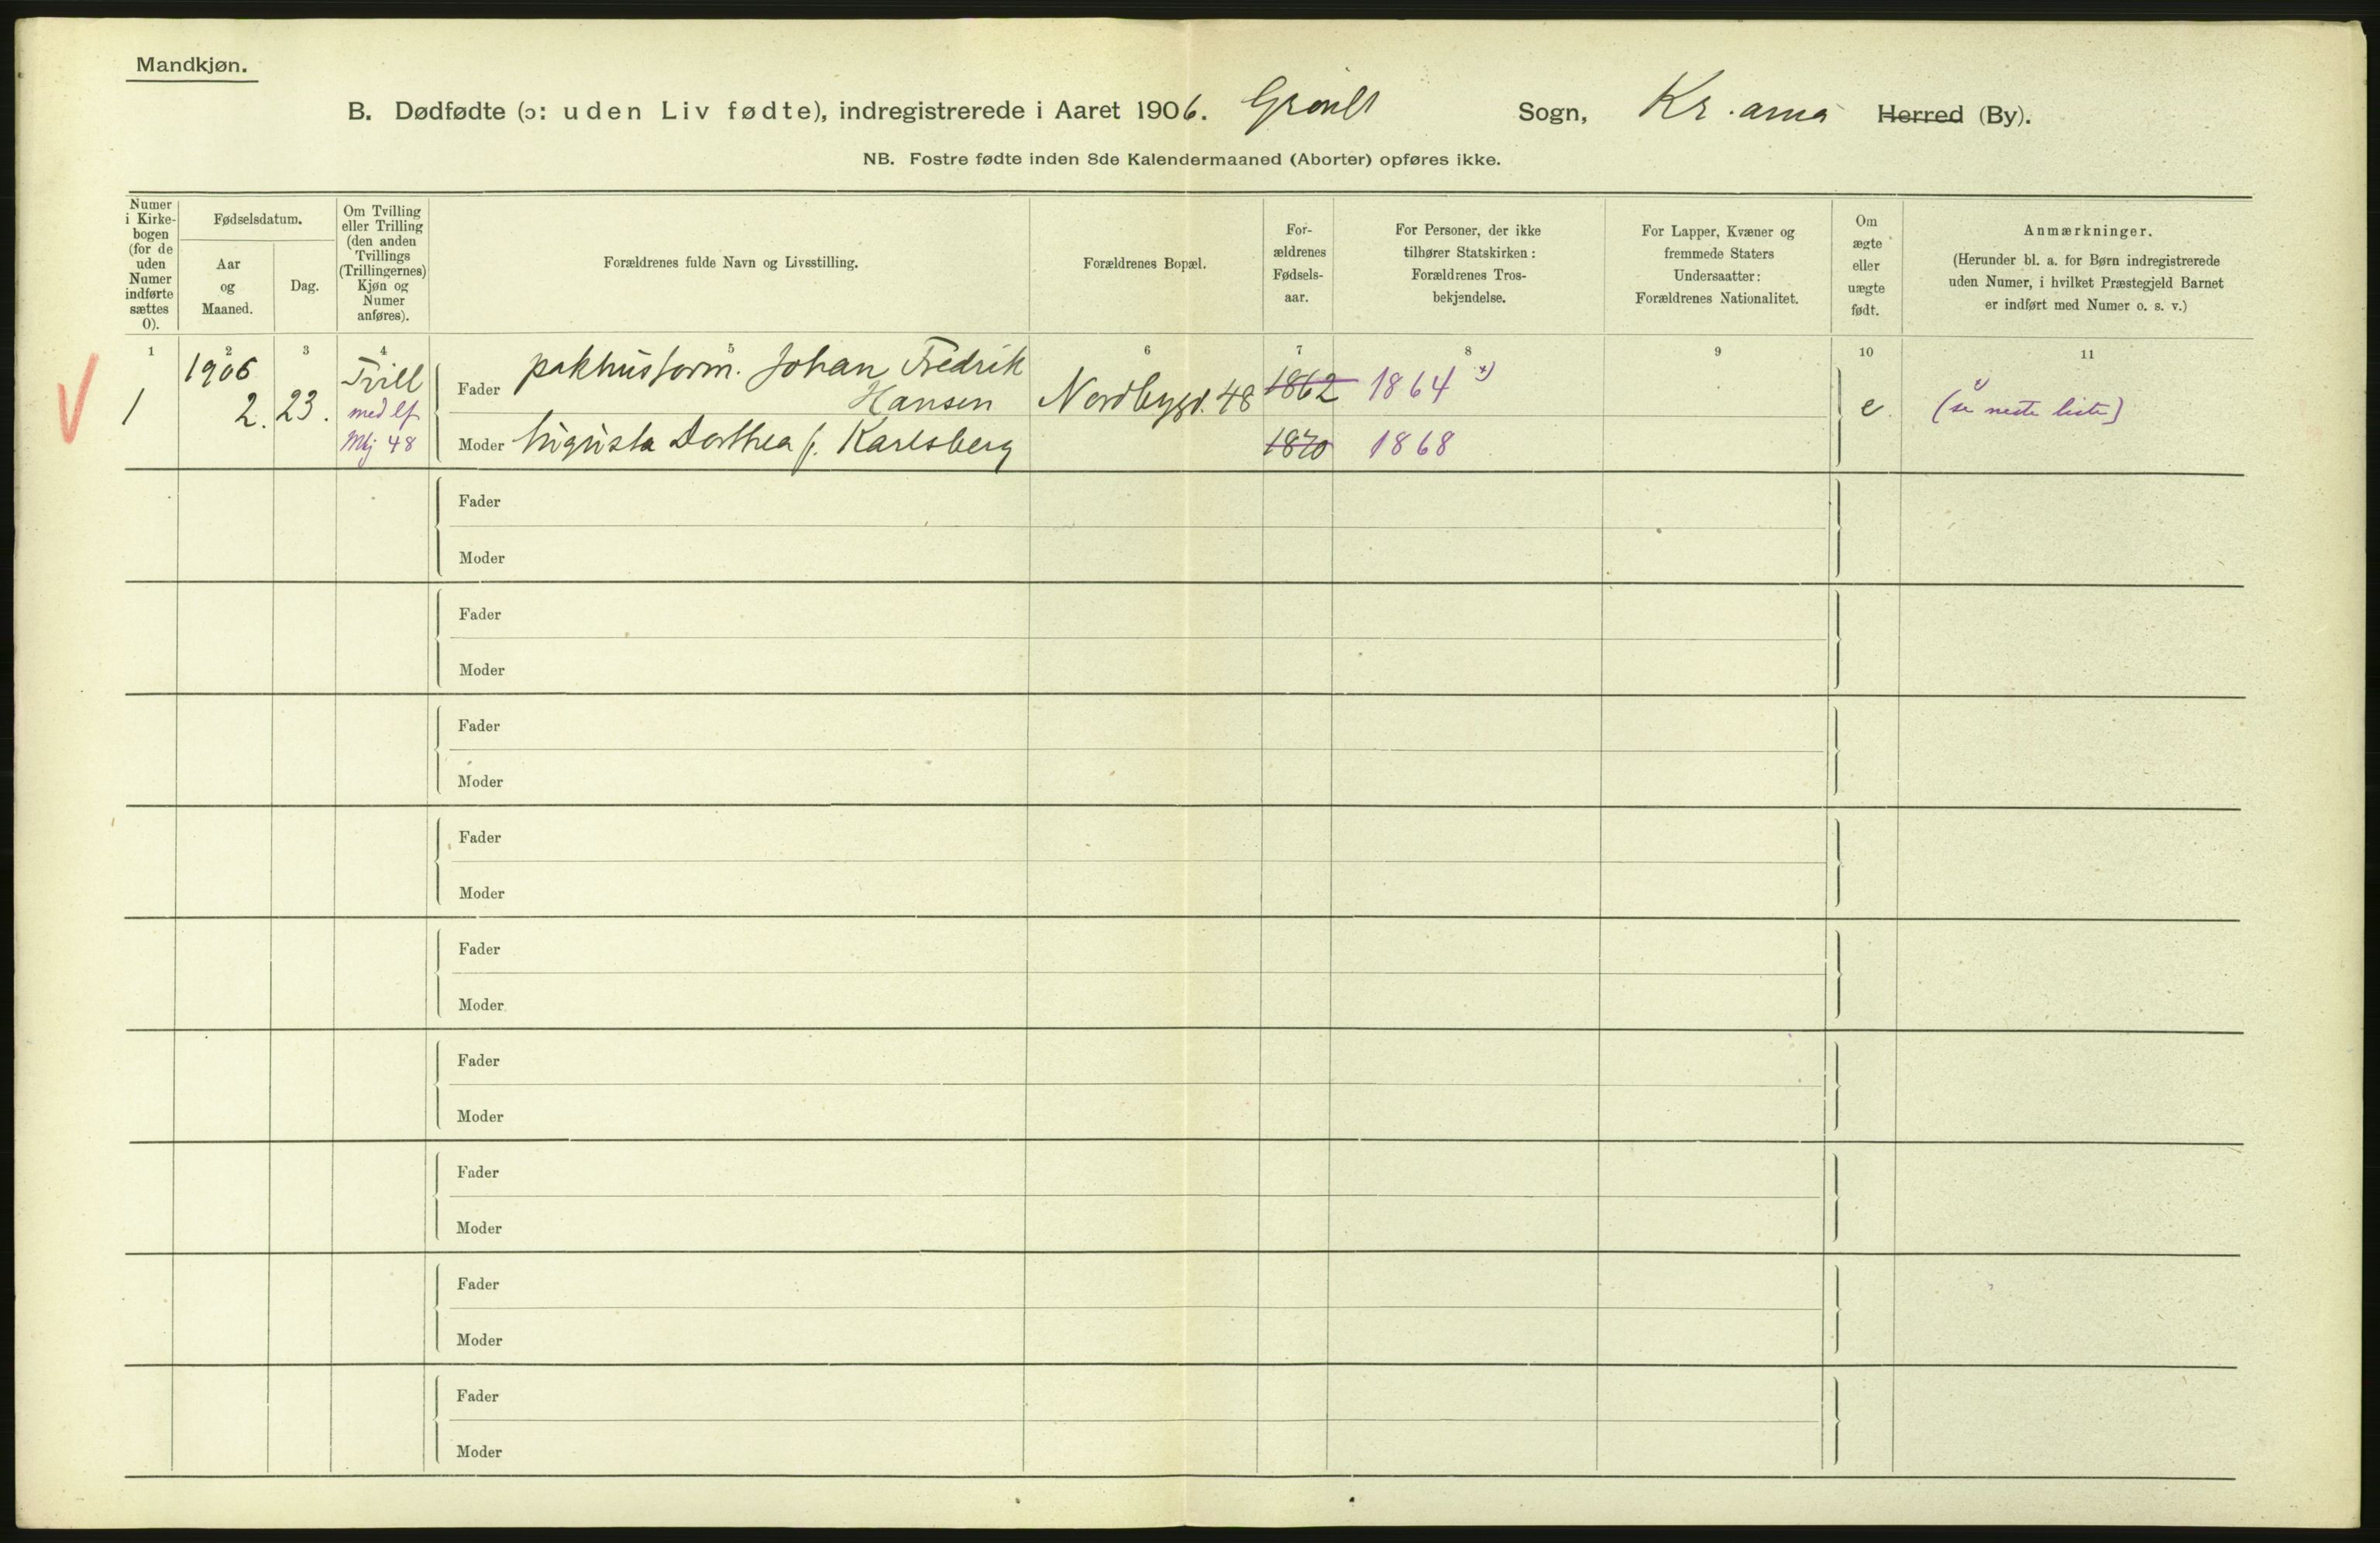 Mandkjøn.
B. Dødfødte (ɔ: uden Liv fødte), indregistrerede i Aaret 1906. Grønl Sogn, Kr.ania Herred (By).
NB. Fostre fødte inden 8de Kalendermaaned (Aborter) opføres ikke.
Numer
i Kirke-
bogen
(for de
uden
Numer
indførte
sættes
0).
Fødselsdatum.
Aar
og
Maaned.
Dag.
Om Tvilling
eller Trilling
(den anden
Tvillings
(Trillingernes)
Kjøn og
Numer
anføres).
Forældrenes fulde Navn og Livsstilling.
Forældrenes Bopæl.
For-
ældrenes
Fødsels-
aar.
For Personer, der ikke
tilhører Statskirken:
Forældrenes Tros-
bekjendelse.
For Lapper, Kvæner og
fremmede Staters
Undersaatter:
Forældrenes Nationalitet.
Om
ægte
eller
uægte
født.
Anmærkninger.
(Herunder bl. a. for Børn indregistrerede
uden Numer, i hvilket Præstegjeld Barnet
er indført med Numer o. s. v.)
1 2 3 4 5 6 7 8 9 10 11
V
1
1906
2. 23.
Tvill
med lf
Mkj 48
Fader pakhusform. Johan Fredrik
Hansen
Nordbygd. 48
1862 1864 x)
e.
(se neste liste)
Moder Augusta Dorthea f. Karlsberg
1870 1868
Fader
Moder
Fader
Moder
Fader
Moder
Fader
Moder
Fader
Moder
Fader
Moder
Fader
Moder
Fader
Moder
Fader
Moder